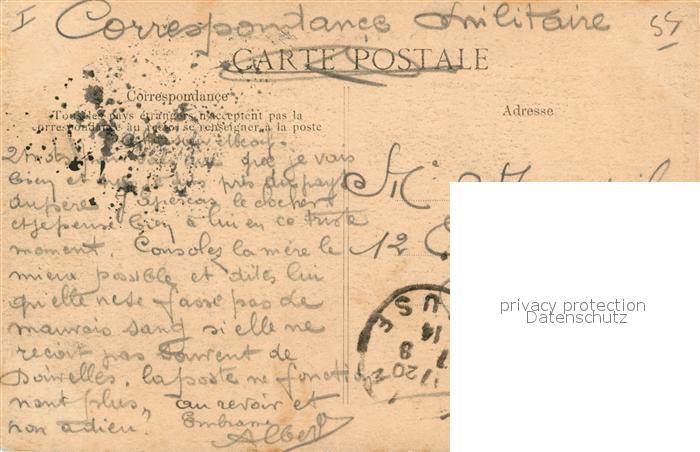 I Correspondance militaire 55
CARTE POSTALE
Correspondance
Tous les pays étrangers n'acceptent pas la
correspondance au recto, se renseigner à la poste
Adresse
2 mots que je vais
bien et que près du pays
du père J'aperçois le clocher
et je pense bien à lui en ce triste
moment. Consolez la mère le
mieux possible et dites lui
qu'elle ne se fasse pas de
mauvais sang si elle ne
reçoit pas souvent de
nouvelles, la poste ne fonction
nant plus, au revoir et
non adieu. Embrass
Albert
M
12
USE
14
8
20
privacy protection
Datenschutz